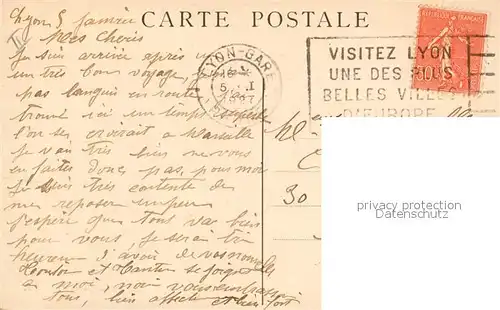 CARTE POSTALE
Lyon 5 Janvier
Mes Chéris
Je suis arrivée après
un très bon voyage,
pas langui en route
trouvé ici un temps superbe
l'on se croirait à Marseille
Je vais très bien ne vous
en faites donc pas pour moi
Je suis très contente de
me reposer un peu
J'espère que tout va bien
pour vous, Je serai très
heureuse d'avoir de vos nouvelles
Tonton et Tantine se joignent
à moi, pour vous embrasser
tous, bien affect et bien fort
LYON-GARE
5 I
REPUBLIQUE FRANÇAISE
VISITEZ LYON
UNE DES PLUS
BELLES VILLES
D'EUROPE
30
privacy protection
Datenschutz